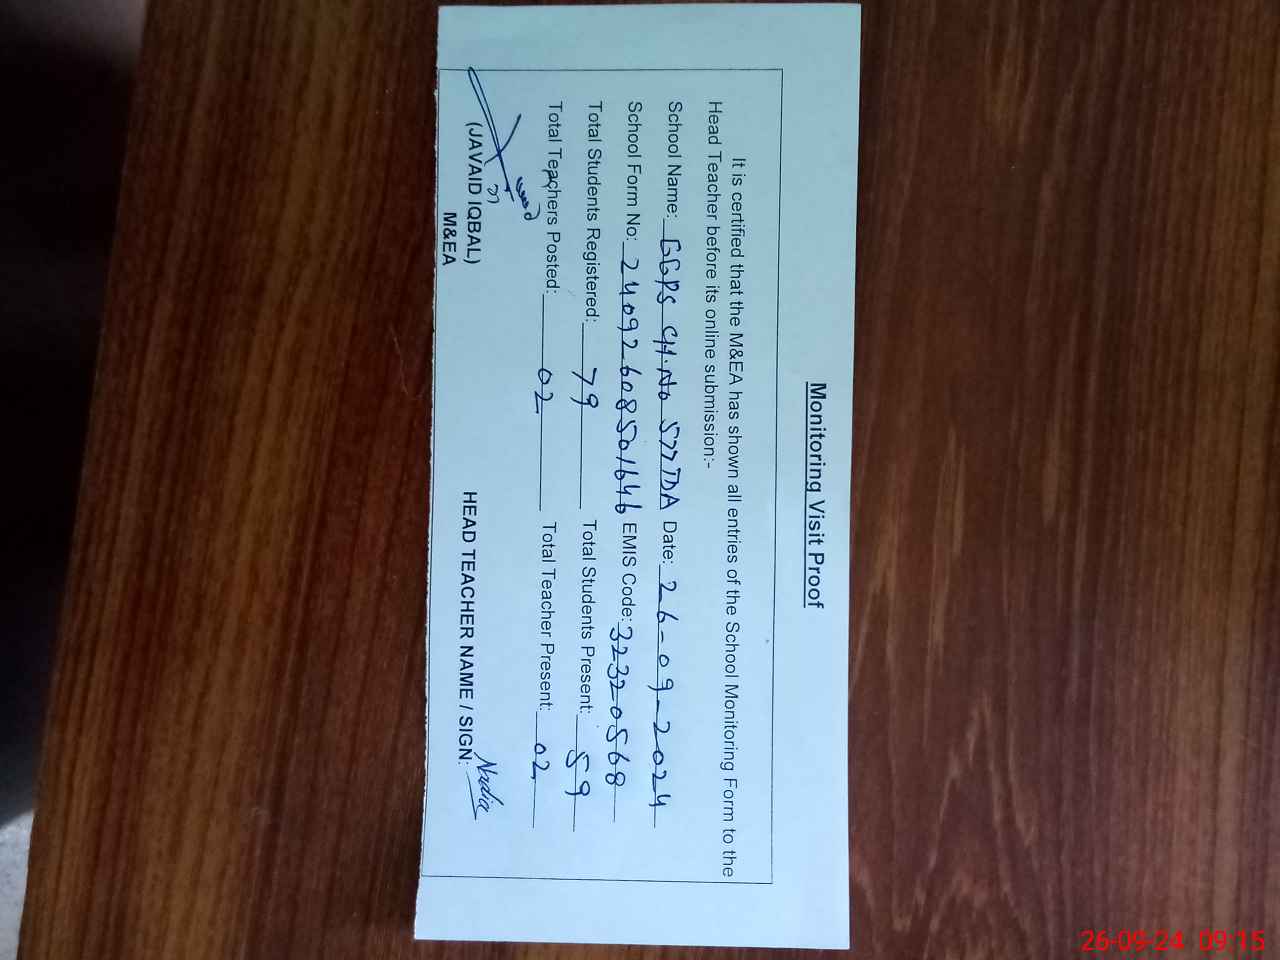 Monitoring Visit Proof
It is certified that the M&EA has shown all entries of the School Monitoring Form to the
Head Teacher before its online submission:-
School Name: GGPS CH.No 577TDA Date: 26-09-2024
School Form No: 24092608501646 EMIS Code: 32320568
Total Students Registered: 79 Total Students Present: 59
Total Teachers Posted: 02 Total Teacher Present: 02
(JAVAID IQBAL)
M&EA
HEAD TEACHER NAME / SIGN: Nadia
26-09-24 09:15